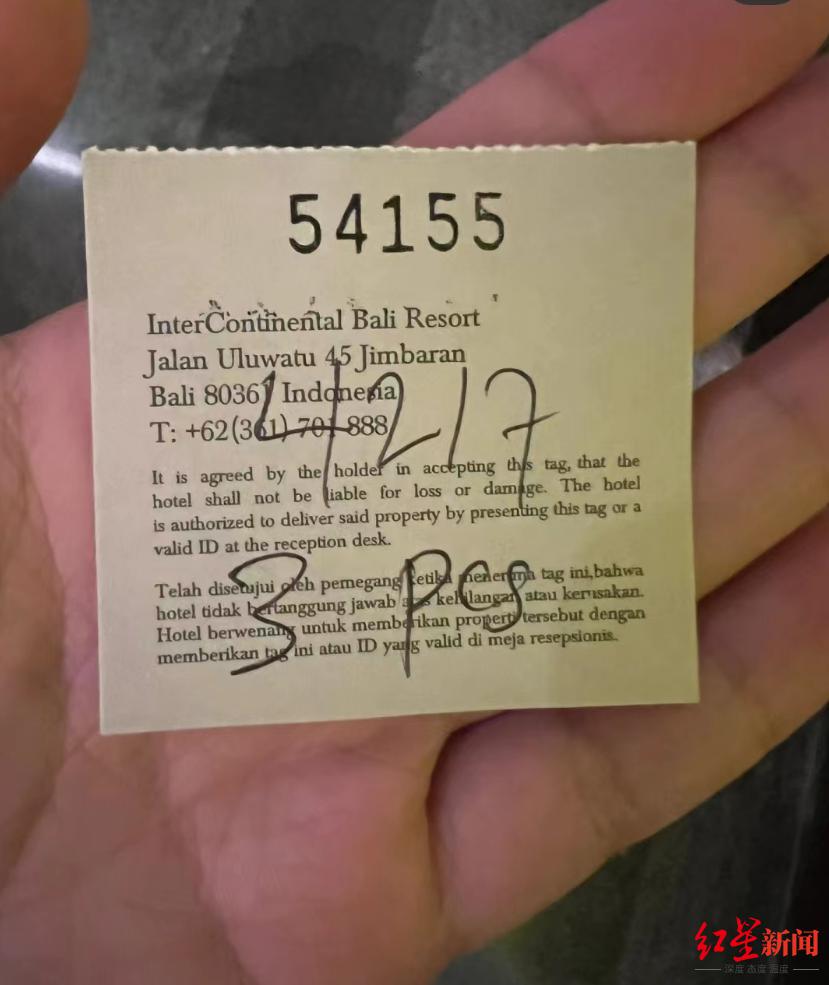 54155
InterContinental Bali Resort
Jalan Uluwatu 45 Jimbaran
Bali 80361 Indonesia
T: +62(361) 701 888
4217
It is agreed by the holder in accepting this tag, that the
hotel shall not be liable for loss or damage. The hotel
is authorized to deliver said property by presenting this tag or a
valid ID at the reception desk.
Telah disetujui oleh pemegang ketika menerima tag ini,bahwa
hotel tidak bertanggung jawab atas kehilangan atau kerusakan.
Hotel berwenang untuk memberikan properti tersebut dengan
memberikan tag ini atau ID yang valid di meja resepsionis.
3 pcs
红星新闻
深度 态度 温度